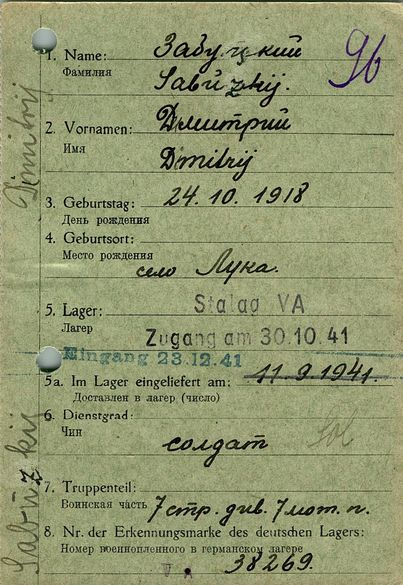 1. Name: Забузский
Фамилия
Sabúzkij.
96
2. Vornamen: Дмитрий
Имя
Dmitrij
3. Geburtstag: 24. 10. 1918
День рождения
4. Geburtsort:
Место рождения
село Лука.
5. Lager: Stalag VA
Лагер
Zugang am 30.10.41
Eingang 23.12.41
5a. Im Lager eingeliefert am: 11.9.1941.
Доставлен в лагер (число)
6. Dienstgrad:
Чин
солдат
Sol
7. Truppenteil:
Воинская часть 7 стр. див. 7 мот. п.
8. Nr. der Erkennungsmarke des deutschen Lagers:
Номер военнопленного в германском лагере
38269.
VA
Dmitrij
Sabúzkij